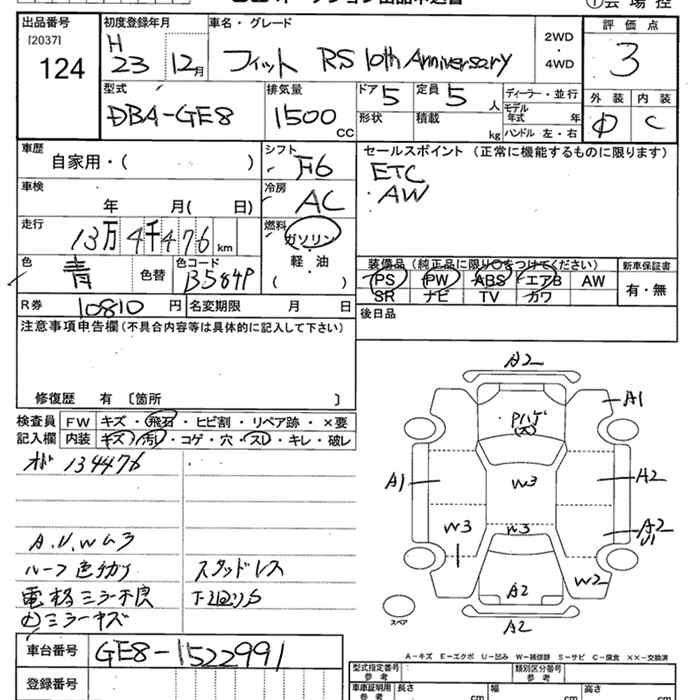 出品番号
[2037]
124
初度登録年月
H
23 12月
車名・グレード
フィット RS 10th Anniversary
2WD
・
4WD
評価点
3
外装 内装
C
型式
DBA-GE8
排気量
1500
CC
ドア
5
定員
5
人
形状
積載
kg
ディーラー・並行
モデル
年式 年
ハンドル 左・右
車歴
自家用・( )
シフト
F6
セールスポイント (正常に機能するものに限ります)
ETC
・AW
車検
年 月( 日)
冷房
AC
走行
13万4千476 km
燃料
ガソリン
軽・油
( )
色
青
色替
色コード
B584P
装備品 (純正品に限り○をつけてください)
PS PW ABS エアB AW
SR ナビ TV カワ
新車保証書
有・無
R券
10810 円
名変期限 月 日
後日品
注意事項申告欄 (不具合内容等は具体的に記入して下さい)
修復歴 有 〔箇所 〕
検査員
記入欄
FW キズ・飛石・ヒビ割・リペア跡・×要
内装 キズ・汚レ・コゲ・穴・スレ・キレ・破レ
134476
A.U.Wム3
ルーフ色分り スタッドレス
電格ミラー不良 下回りS
ミラーキズ
A2
A1
Pハゲ
A1
W3
A2
W3
W3
A2
U1
W2
A2
A2
スペア
A－キズ E－エクボ U－凹み W－補修跡 S－サビ C－腐食 ××－交換済
車台番号
GE8-1522991
登録番号
型式指定番号
参考
類別区分番号
参考
車庫証明用
参考
長さ
cm
幅
cm
高さ
cm